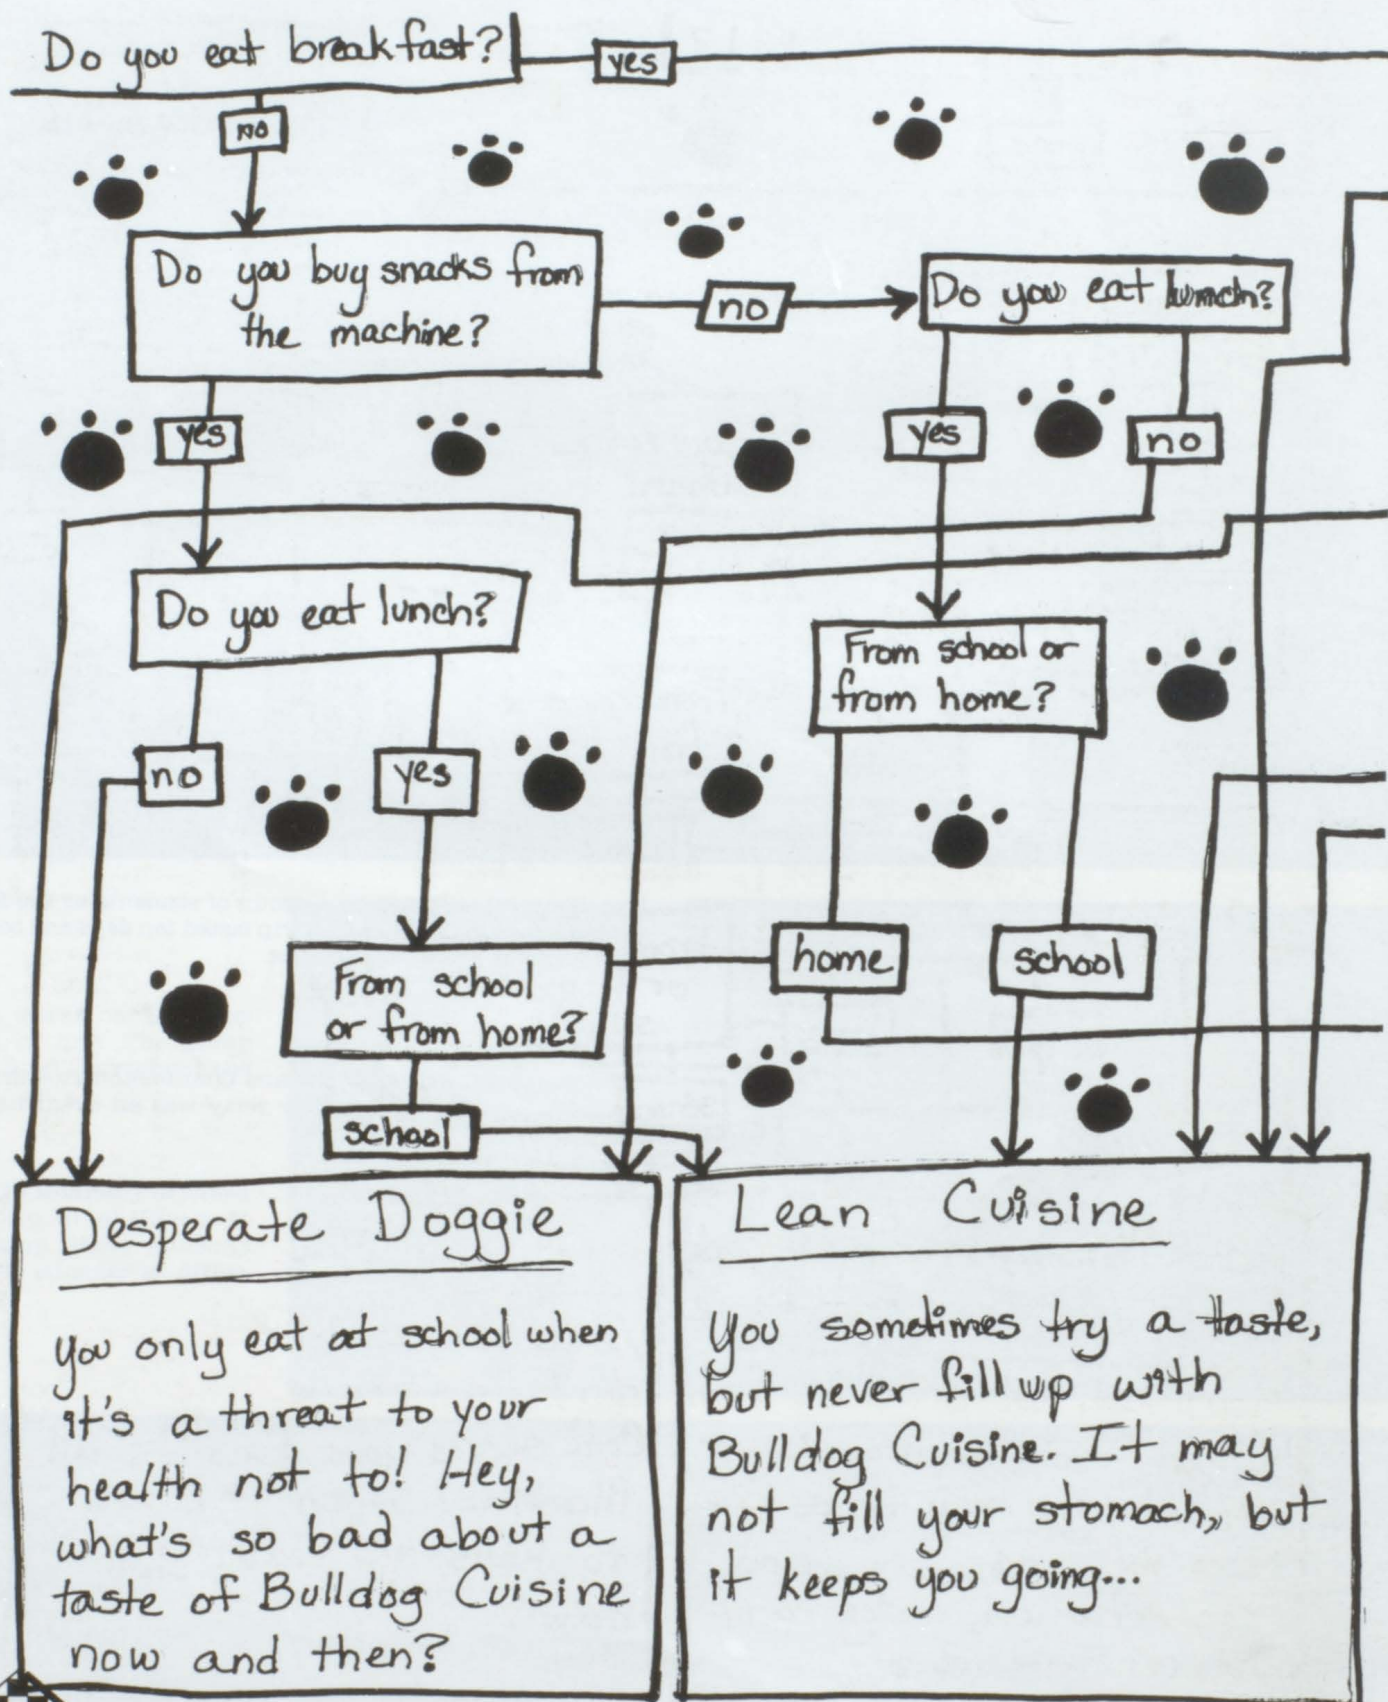 Do you eat breakfast?
yes
no
Do you buy snacks from
the machine?
no
Do you eat lunch?
yes
yes
no
Do you eat lunch?
From school or
from home?
no
yes
home
school
From school
or from home?
school
Desperate Doggie
you only eat at school when
it's a threat to your
health not to! Hey,
what's so bad about a
taste of Bulldog Cuisine
now and then?
Lean Cuisine
You sometimes try a taste,
but never fill up with
Bulldog Cuisine. It may
not fill your stomach, but
it keeps you going...